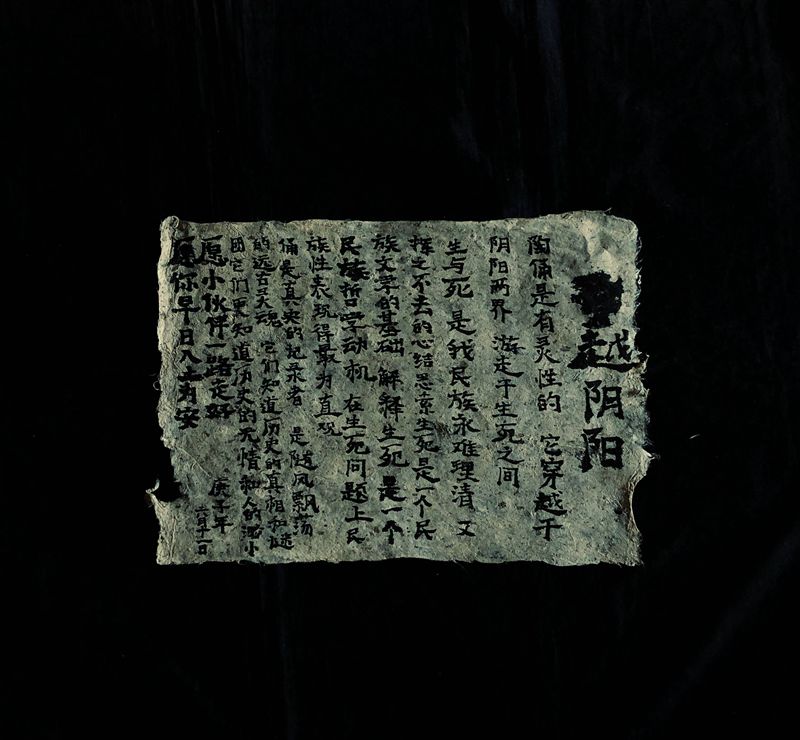 穿越阴阳
陶俑是有灵性的 它穿越于
阴阳两界 游走于生死之间
生与死 是我民族永难理清 又
挥之不去的心结 思索生死是一个民
族文学的基础 解释生死 是一个
民族哲学动机 在生死问题上 民
族性表现得最为直观
俑是真实的记录者 是随风飘荡
的远古灵魂 它们知道历史的真相和谜
团 它们更知道历史的无情和人的渺小
愿小伙伴一路走好
愿你早日入土为安
庚子年
六月十一日